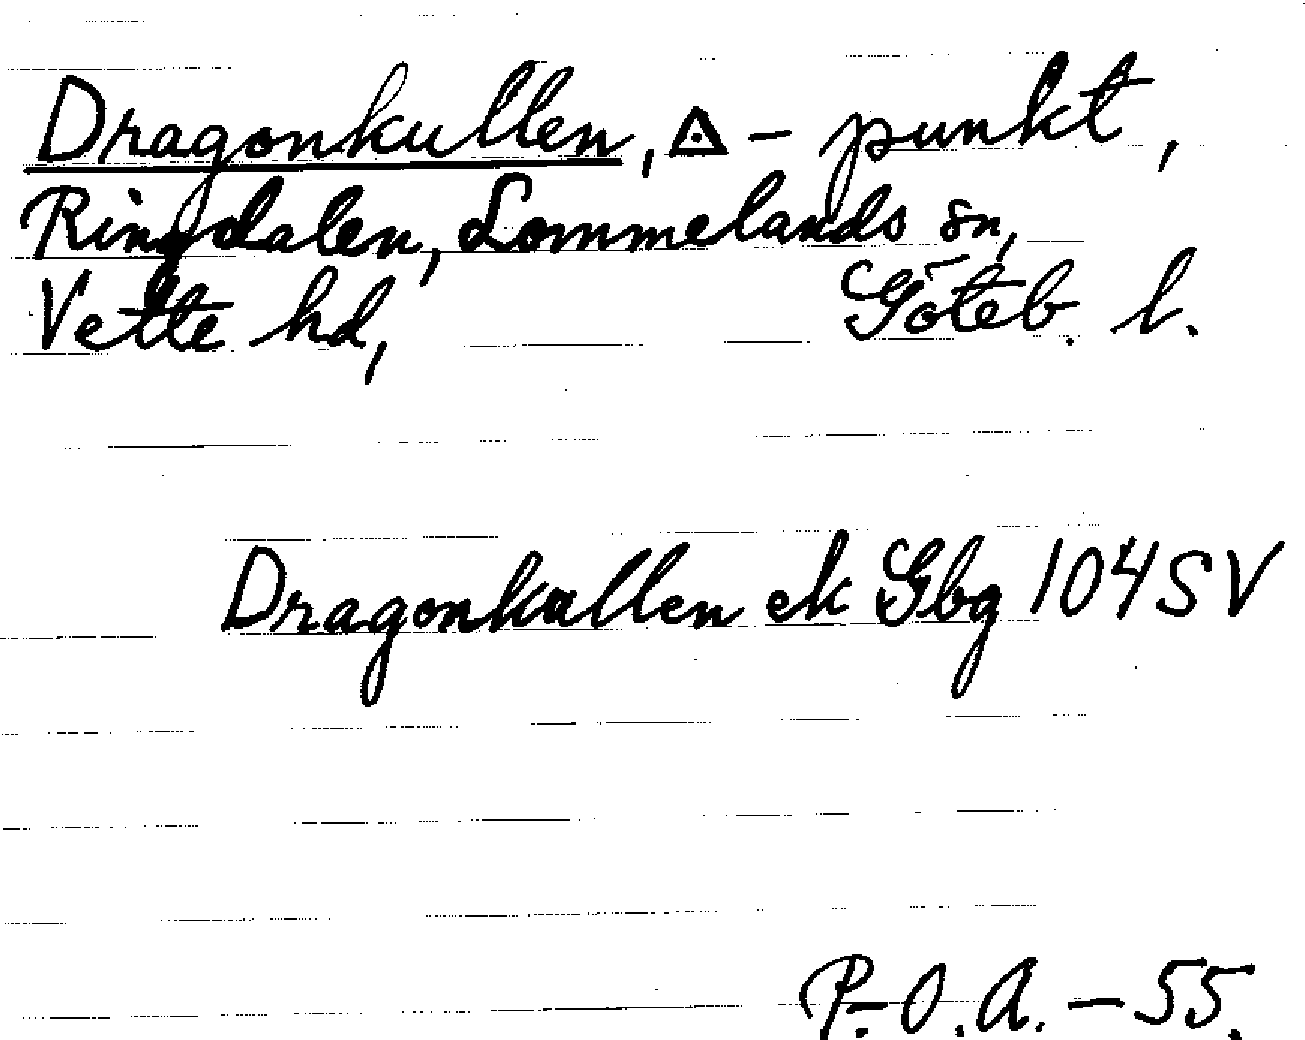 Dragonkullen, ◬ - punkt,
Ringdalen, Lommelands sn,
Vette hd, Göteb. l.
Dragonkullen ek Gbg 104 SV
P.-O.A. - 55.